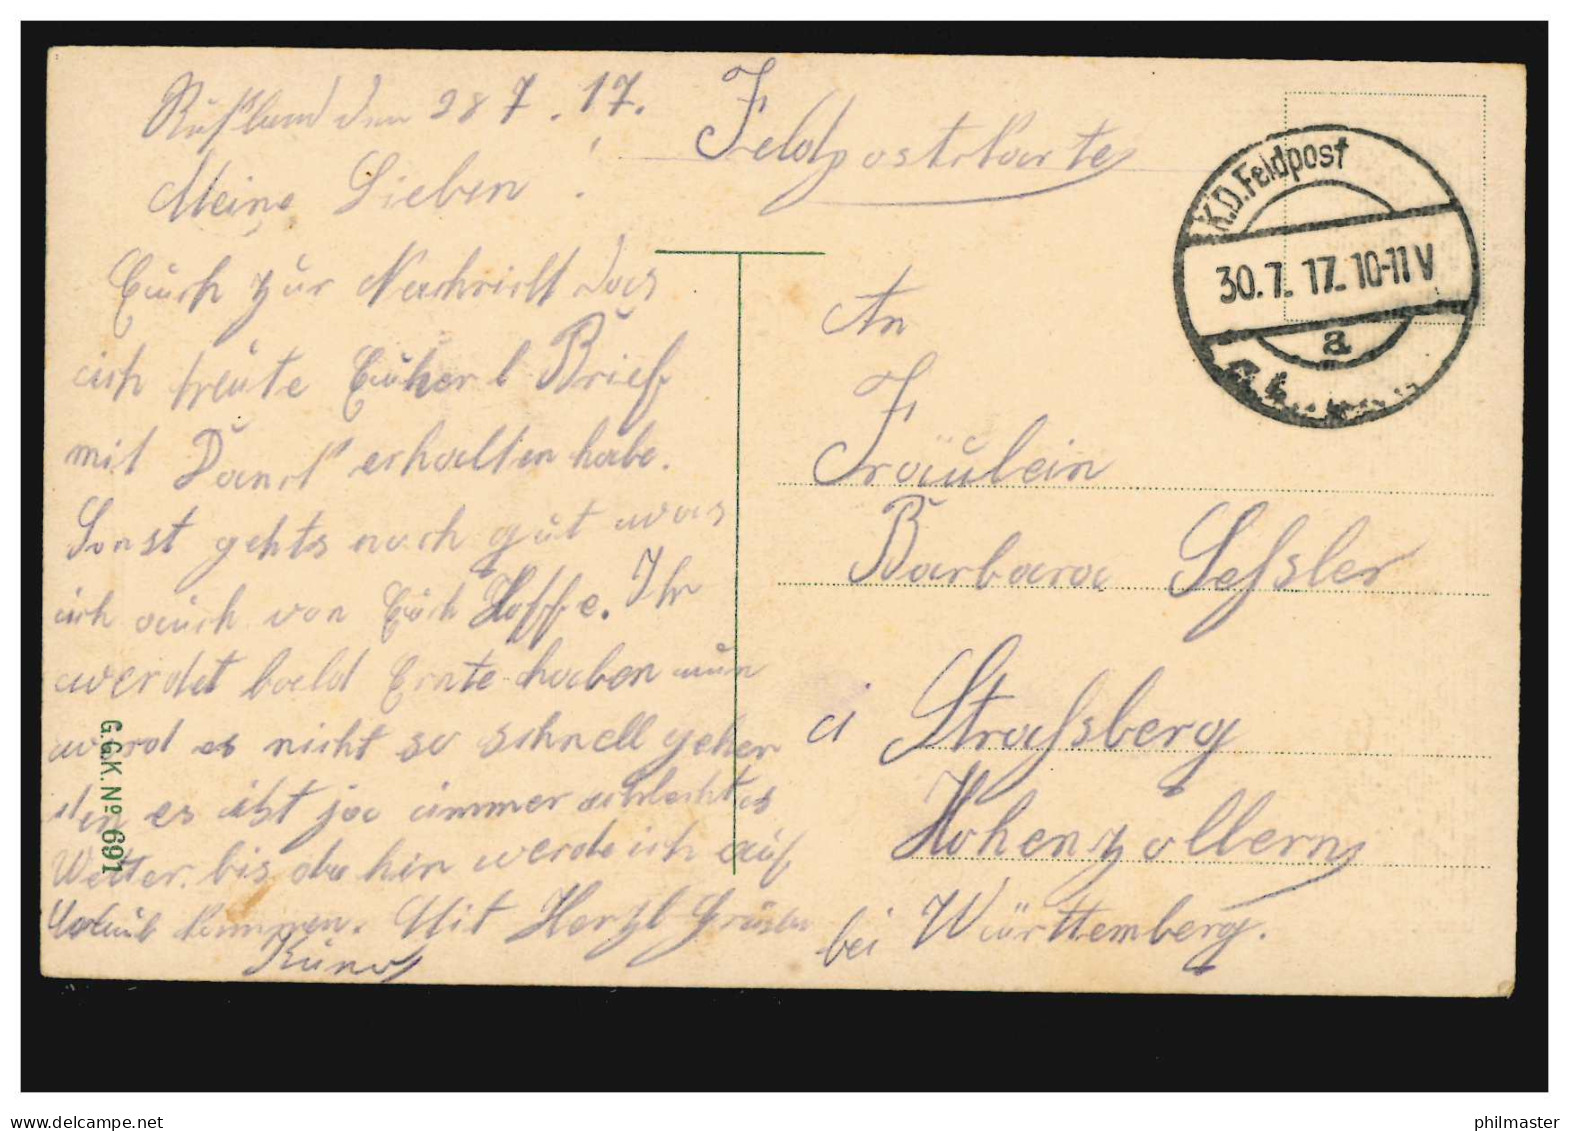 Rußland den 28 7. 17.
Meine Lieben!
Euch zur Nachricht das
ich heute Euher l Brief
mit Dank erhalten habe.
Sonst gehts noch gut was
ich auch von Euch Hoffe. Ihr
werdet bald Ernte haben nun
werd es nicht so schnell gehen
den es ist ja immer schlechtes
Wetter. bis da hin werde ich auf
Urlaub kommen. Mit Herzl Grüßen
Feldpostkarte
K.D. Feldpost
30.7.17. 10-11 V
a
An
Fräulein
Barbara Seßler
Straßberg
Hohenzollern
bei Württemberg.
G.G.K. Nº 691
delcampe.net
philmaster